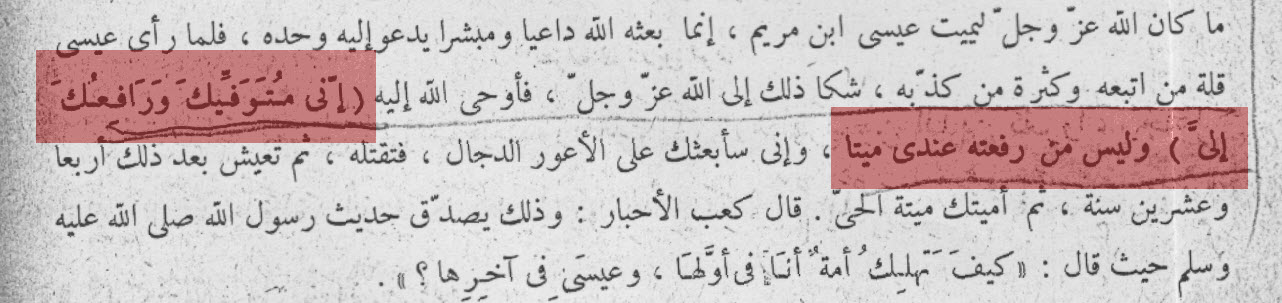 ما كان الله عزّ وجلّ ليميت عيسى ابن مريم ، إنما بعثه الله داعيا ومبشرا يدعو إليه وحده ، فلما رأى عيسى
قلة من اتبعه وكثرة من كذّبه ، شكا ذلك إلى الله عزّ وجلّ ، فأوحى الله إليه ( إنّى مُتَوَفِّيكَ وَرَافِعُكَ
إلىَّ ) وليس مَنْ رفعته عندى ميتا ، وإنى سأبعثك على الأعور الدجال ، فتقتله ، ثم تعيش بعد ذلك أربعا
وعشرين سنة ، ثم أميتك ميتة الحىّ . قال كعب الأحبار : وذلك يصدّق حديث رسول الله صلى الله عليه
وسلم حيث قال : « كيفَ تَهلِكُ أمةٌ أنَا فى أوَّلهَا ، وعيسَى فِى آخِرِها ؟ » .